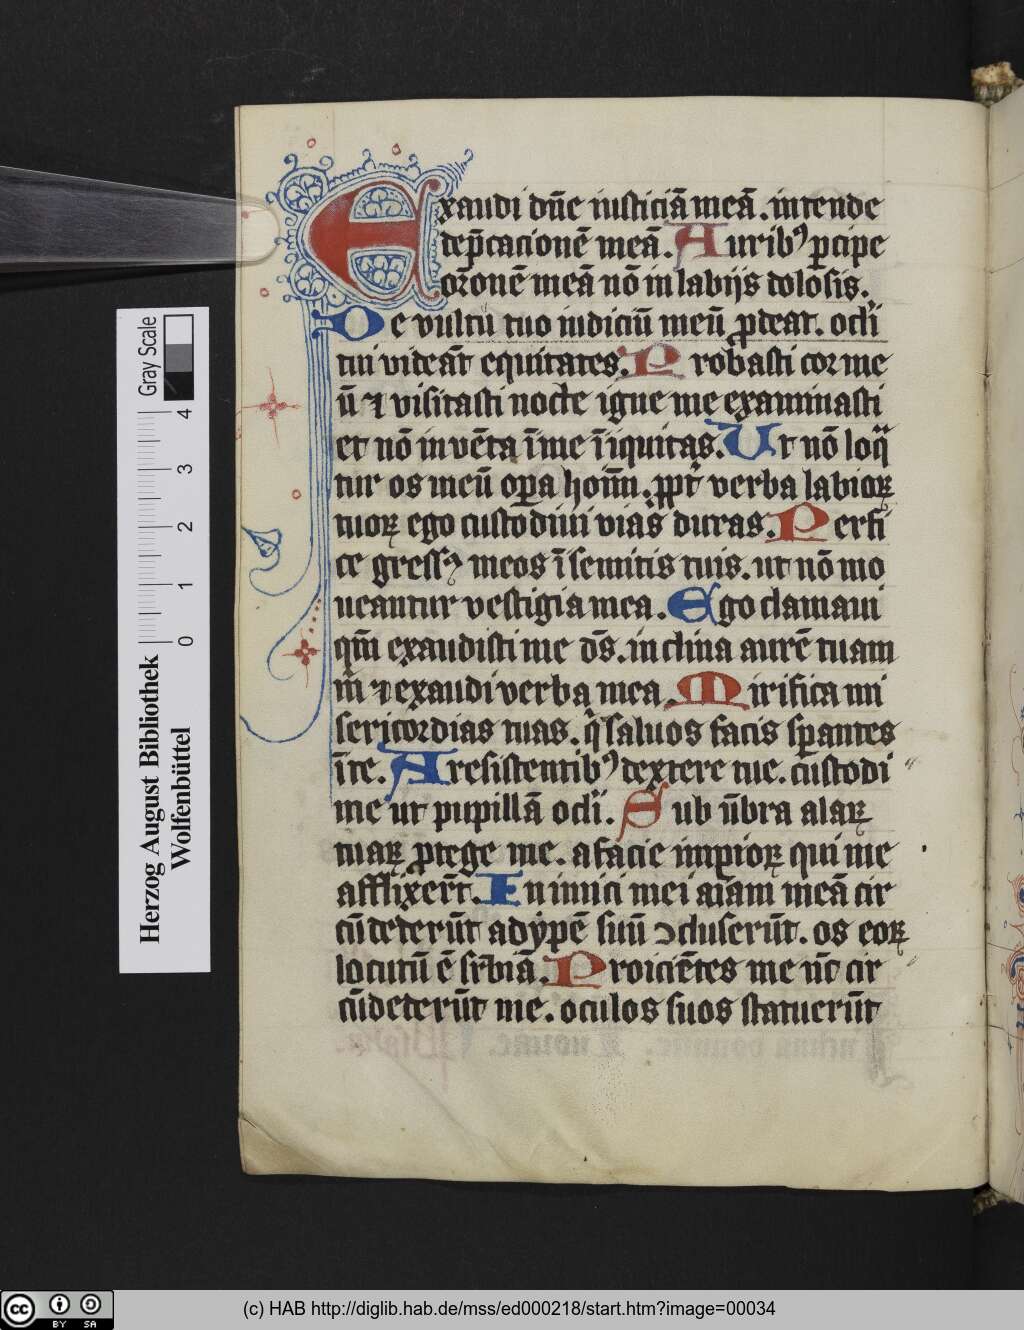 Exaudi dn̄e iusticiā meā. intende
dep̄cacionē meā. Aurib⁹ p̄cipe
or̄onē meā nō in labijs dolosis.
De vultu tuo iudiciū meū ꝓdeat. oculi
tui videāt equitates. Probasti cor me
ū ⁊ visitasti nocte igne me examinasti
et nō inventa ī me īiquitas. Ut nō loq̄
tur os meū opa hoīm. ꝓpt̄ verba labioꝝ
tuoꝝ ego custodiui vias duras. Perfi
ce gress⁹ meos ī semitis tuis. ut nō mo
ueantur vestigia mea. Ego clamaui
qm̄ exaudisti me ds̄. inclina aurē tuam
m̄ ⁊ exaudi verba mea. Mirifica mi
sericordias tuas. q̄ saluos facis sꝑantes
ī te. A resistentib⁹ dextere tue. custodi
me ut pupillā ocli. Sub ūbra alaꝝ
tuaꝝ ꝓtege me. a facie impioꝝ qui me
afflixert̄. Inimici mei aīam meā cir
cūdederūt adypē suū ↄcluserūt. os eoꝝ
locutū ē sꝑbiā. Proiciētes me nc̄ cir
cūdederūt me. oculos suos statuerūt
Gray Scale
4 3 2 1 0
Herzog August Bibliothek
Wolfenbüttel
cc BY SA
(c) HAB http://diglib.hab.de/mss/ed000218/start.htm?image=00034